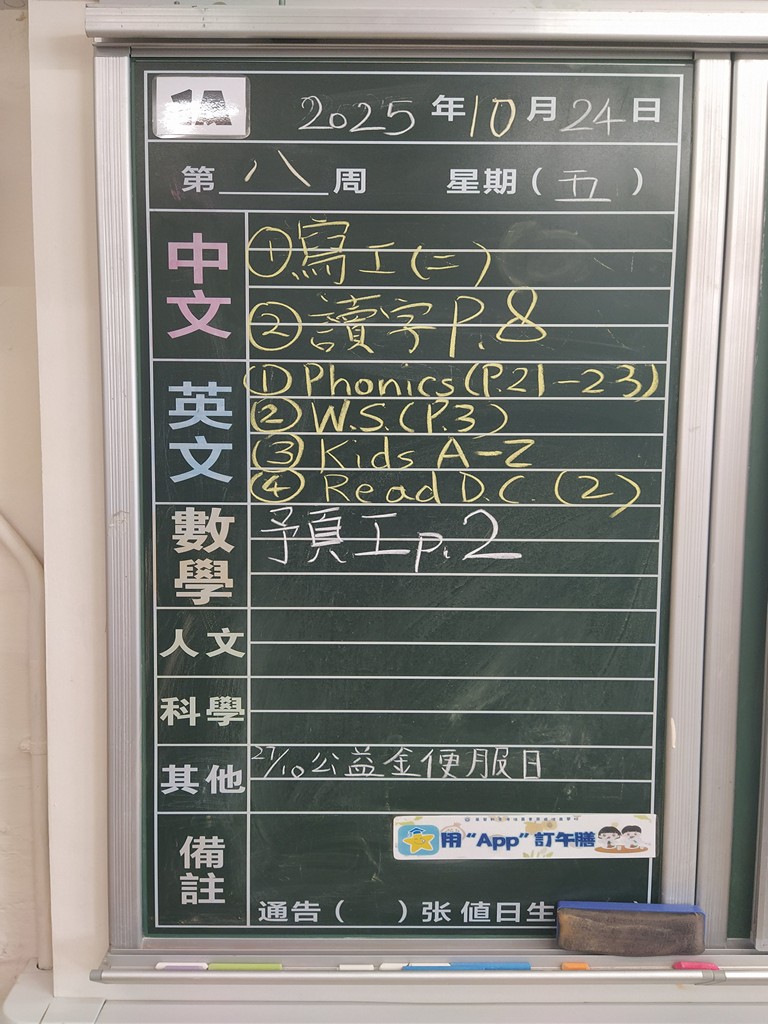 1A 2025年10月24日
第八周 星期(五)
中文
①寫工(二)
②讀字P.8
英文
①Phonics(P.21-23)
②W.S.(P.3)
③Kids A-Z
④Read D.C.(2)
數學
預工p.2
人文
科學
其他
27/10公益金便服日
備註
用“App”訂午膳
通告( )张 值日生